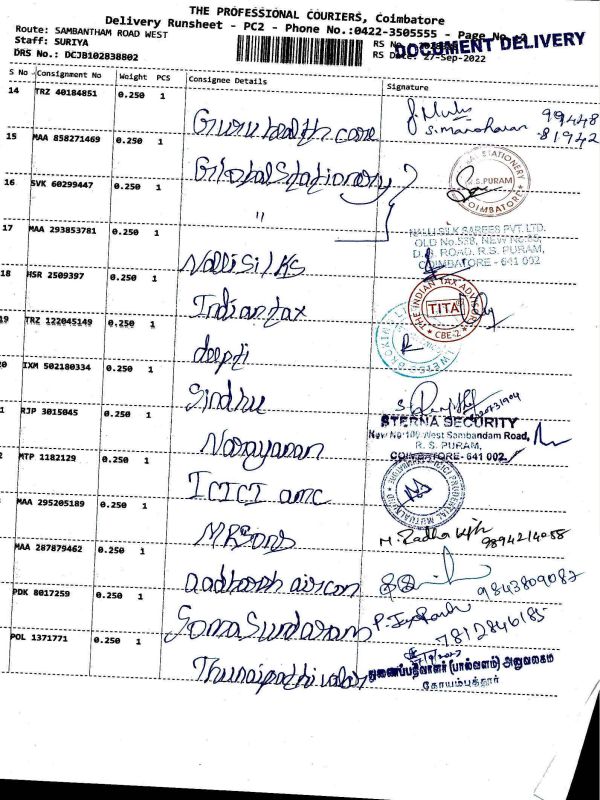 THE PROFESSIONAL COURIERS, Coimbatore
Delivery Runsheet - PC2 - Phone No.:0422-3505555 - Page No.
Route: SAMBANTHAM ROAD WEST
Staff: SURIYA
DRS No.: DCJB102838802
DOCUMENT DELIVERY
RS Date: 27-Sep-2022
S No Consignment No Weight PCS Consignee Details Signature
14 TRZ 40184851 0.250 1
Guru health care
99448
S. Manoharan 81942
15 MAA 858271469 0.250 1
Global Stationery
STATIONERY R.S.PURAM COIMBATORE
16 SVK 60299447 0.250 1
"
17 MAA 293853781 0.250 1
Nalli silks
NALLI SILK SAREES PVT. LTD.
OLD No.538, NEW No.
D.B. ROAD, R.S. PURAM,
COIMBATORE - 641 002
18 HSR 2509397 0.250 1
Indian tax
THE INDIAN TAX ADVISOR
TITA
CBE-2
19 TRZ 122045149 0.250 1
deepti
20 IXM 502180334 0.250 1
Sindhu
1 RJP 3015045 0.250 1
Narayanan
STERNA SECURITY
New No 100 West Sambandam Road,
R. S. PURAM,
COIMBATORE- 641 002
2 MTP 1182129 0.250 1
ICICI amc
ICICI PRUDENTIAL MUTUAL
MAA 295205189 0.250 1
MRSons
9894214055
MAA 287879462 0.250 1
aircon
9843809082
PDK 8017259 0.250 1
Soma Sundaram
7812846185
POL 1371771 0.250 1
துணைப்பதிவாளர் (பால்வளம்) அலுவலகம்
கோயம்புத்தூர்